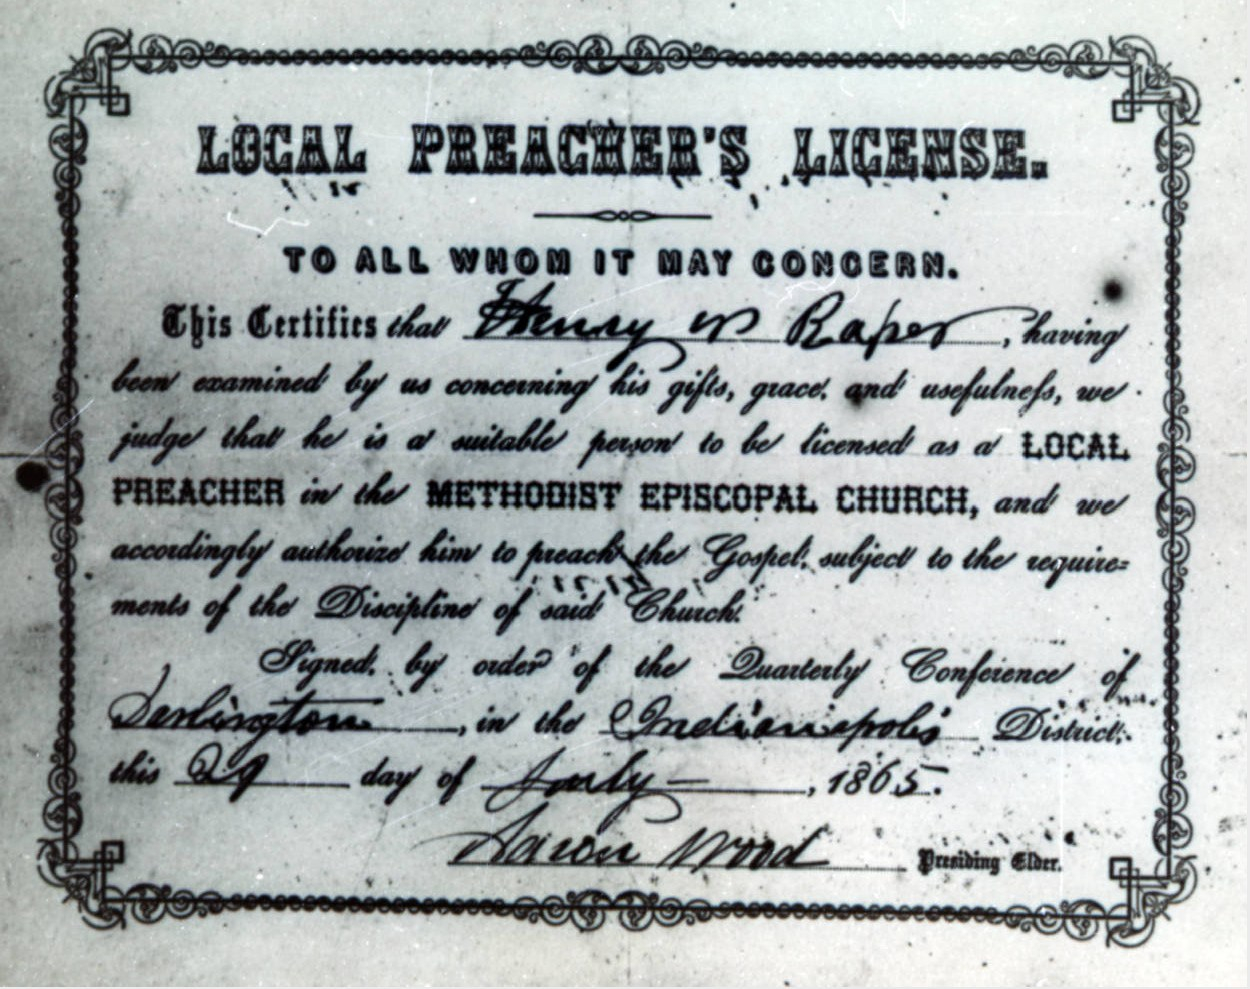 LOCAL PREACHER'S LICENSE.
TO ALL WHOM IT MAY CONCERN.
This Certifies that Henry W Raper, having
been examined by us concerning his gifts, grace, and usefulneſs, we
judge that he is a suitable person to be licensed as a LOCAL
PREACHER in the METHODIST EPISCOPAL CHURCH, and we
accordingly authorize him to preach the Gospel, subject to the require=
ments of the Discipline of said Church.
Signed, by order of the Quarterly Conference of
Darlington, in the Indianapolis District,
this 29 day of July — , 1865.
Aaron Wood Presiding Elder.